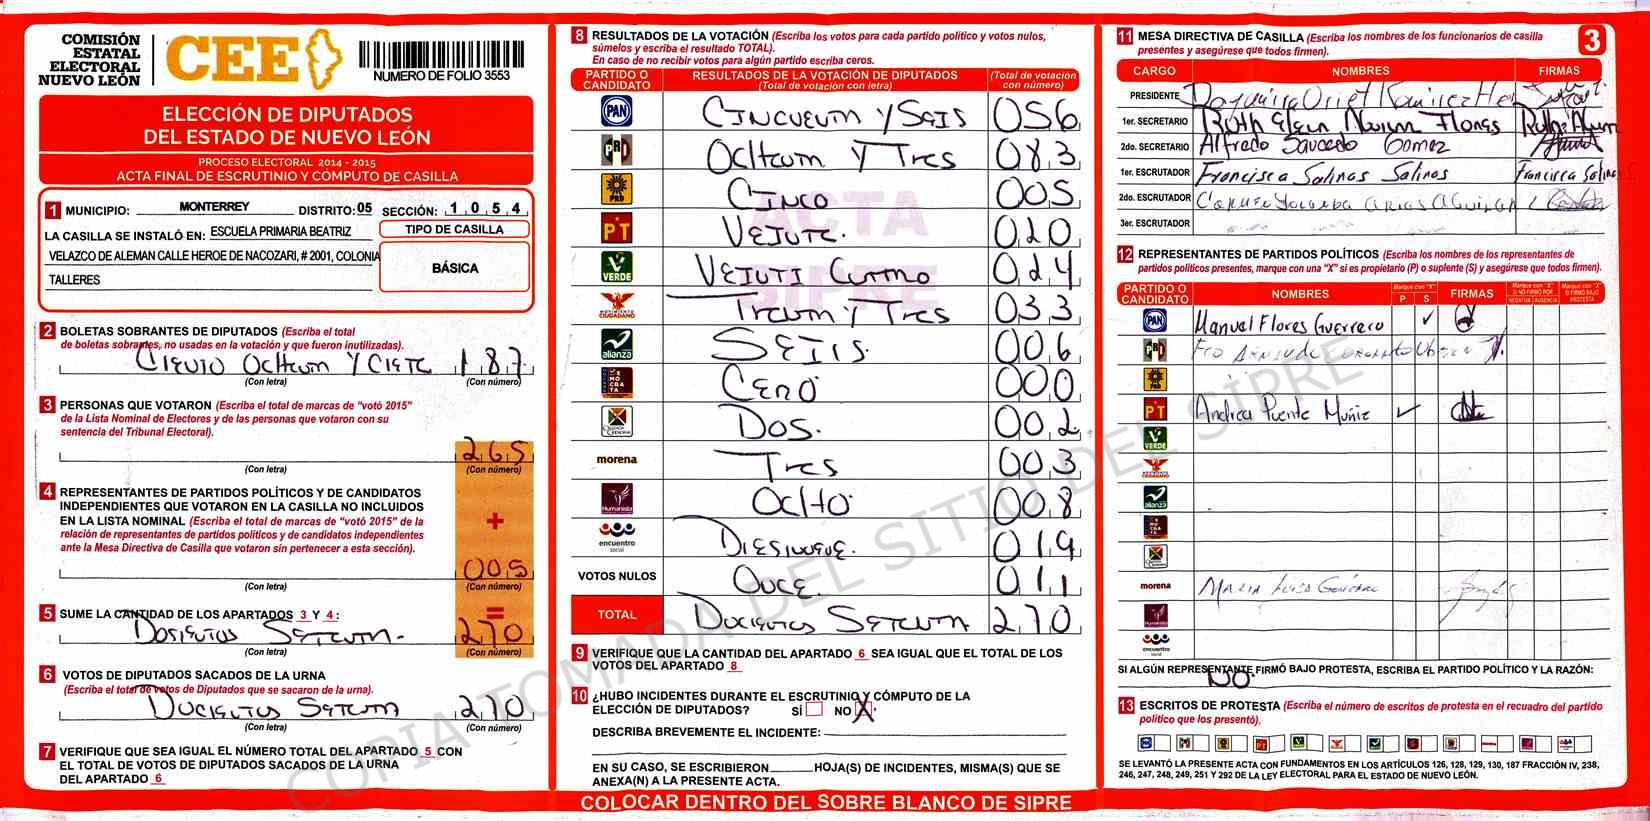 COMISIÓN
ESTATAL
ELECTORAL
NUEVO LEÓN
CEE
NUMERO DE FOLIO 3553
ELECCIÓN DE DIPUTADOS
DEL ESTADO DE NUEVO LEÓN
PROCESO ELECTORAL 2014 - 2015
ACTA FINAL DE ESCRUTINIO Y CÓMPUTO DE CASILLA
1 MUNICIPIO: MONTERREY DISTRITO: 05 SECCIÓN: 1 0 5 4
LA CASILLA SE INSTALÓ EN: ESCUELA PRIMARIA BEATRIZ
VELAZCO DE ALEMAN CALLE HEROE DE NACOZARI, # 2001, COLONIA
TALLERES
TIPO DE CASILLA
BÁSICA
2 BOLETAS SOBRANTES DE DIPUTADOS (Escriba el total
de boletas sobrantes, no usadas en la votación y que fueron inutilizadas).
CIENTO OCHENTA Y CIETE 187
(Con letra) (Con número)
3 PERSONAS QUE VOTARON (Escriba el total de marcas de "votó 2015"
de la Lista Nominal de Electores y de las personas que votaron con su
sentencia del Tribunal Electoral).
265
(Con letra) (Con número)
4 REPRESENTANTES DE PARTIDOS POLÍTICOS Y DE CANDIDATOS
INDEPENDIENTES QUE VOTARON EN LA CASILLA NO INCLUIDOS
EN LA LISTA NOMINAL (Escriba el total de marcas de "votó 2015" de la
relación de representantes de partidos políticos y de candidatos independientes
ante la Mesa Directiva de Casilla que votaron sin pertenecer a esta sección).
+
005
(Con letra) (Con número)
=
5 SUME LA CANTIDAD DE LOS APARTADOS 3 Y 4:
DOSIENTOS SETENTA. 270
(Con letra) (Con número)
6 VOTOS DE DIPUTADOS SACADOS DE LA URNA
(Escriba el total de votos de Diputados que se sacaron de la urna).
DUCIENTOS SETENTA 270
(Con letra) (Con número)
7 VERIFIQUE QUE SEA IGUAL EL NÚMERO TOTAL DEL APARTADO 5 CON
EL TOTAL DE VOTOS DE DIPUTADOS SACADOS DE LA URNA
DEL APARTADO 6
8 RESULTADOS DE LA VOTACIÓN (Escriba los votos para cada partido político y votos nulos,
súmelos y escriba el resultado TOTAL).
En caso de no recibir votos para algún partido escriba ceros.
PARTIDO O CANDIDATO RESULTADOS DE LA VOTACIÓN DE DIPUTADOS (Total de votación con letra) (Total de votación con número)
PAN CINCUENTA Y SEIS 056
PRI OCHENTA Y TRES 083
PRD CINCO 005
PT VEINTE. 020
VERDE VEINTI CUATRO 024
MOVIMIENTO CIUDADANO TREINTA Y TRES 033
alianza SEIS. 006
DEMOCRATA CERO 000
CRUZADA CIUDADANA DOS. 002
morena TRES 003
Humanista OCHO 008
encuentro social DIESINUEVE. 019
VOTOS NULOS ONCE. 011
TOTAL DUCIENTOS SETENTA 270
9 VERIFIQUE QUE LA CANTIDAD DEL APARTADO 6 SEA IGUAL QUE EL TOTAL DE LOS
VOTOS DEL APARTADO 8
10 ¿HUBO INCIDENTES DURANTE EL ESCRUTINIO Y CÓMPUTO DE LA
ELECCIÓN DE DIPUTADOS? SÍ NO X
DESCRIBA BREVEMENTE EL INCIDENTE:
EN SU CASO, SE ESCRIBIERON HOJA(S) DE INCIDENTES, MISMA(S) QUE SE
ANEXA(N) A LA PRESENTE ACTA.
COLOCAR DENTRO DEL SOBRE BLANCO DE SIPRE
ACTA
SIPRE
COPIA TOMADA DEL SITIO DEL SIPRE
3
11 MESA DIRECTIVA DE CASILLA (Escriba los nombres de los funcionarios de casilla
presentes y asegúrese que todos firmen).
CARGO NOMBRES FIRMAS
PRESIDENTE
1er. SECRETARIO Ruth Elena Flores
2do. SECRETARIO Alfredo Saucedo Gomez
1er. ESCRUTADOR Francisca Salinas Salinas Francisca Salinas
2do. ESCRUTADOR Yolanda
3er. ESCRUTADOR
12 REPRESENTANTES DE PARTIDOS POLÍTICOS (Escriba los nombres de los representantes de
partidos políticos presentes, marque con una "X" si es propietario (P) o suplente (S) y asegúrese que todos firmen).
PARTIDO O CANDIDATO NOMBRES Marque con "X" P S FIRMAS Marque con "X" SI NO FIRMO POR NEGATIVA AUSENCIA Marque con "X" SI FIRMO BAJO PROTESTA
PAN Manuel Flores Guerrero ✓
PRI
PRD
PT Andrea Puente Muñiz ✓
VERDE
MOVIMIENTO CIUDADANO
alianza
DEMOCRATA
morena Maria Luisa
Humanista
encuentro social
SI ALGÚN REPRESENTANTE FIRMÓ BAJO PROTESTA, ESCRIBA EL PARTIDO POLÍTICO Y LA RAZÓN:
NO.
13 ESCRITOS DE PROTESTA (Escriba el número de escritos de protesta en el recuadro del partido
político que los presentó).
SE LEVANTÓ LA PRESENTE ACTA CON FUNDAMENTOS EN LOS ARTÍCULOS 126, 128, 129, 130, 187 FRACCIÓN IV, 238,
246, 247, 248, 249, 251 Y 292 DE LA LEY ELECTORAL PARA EL ESTADO DE NUEVO LEÓN.